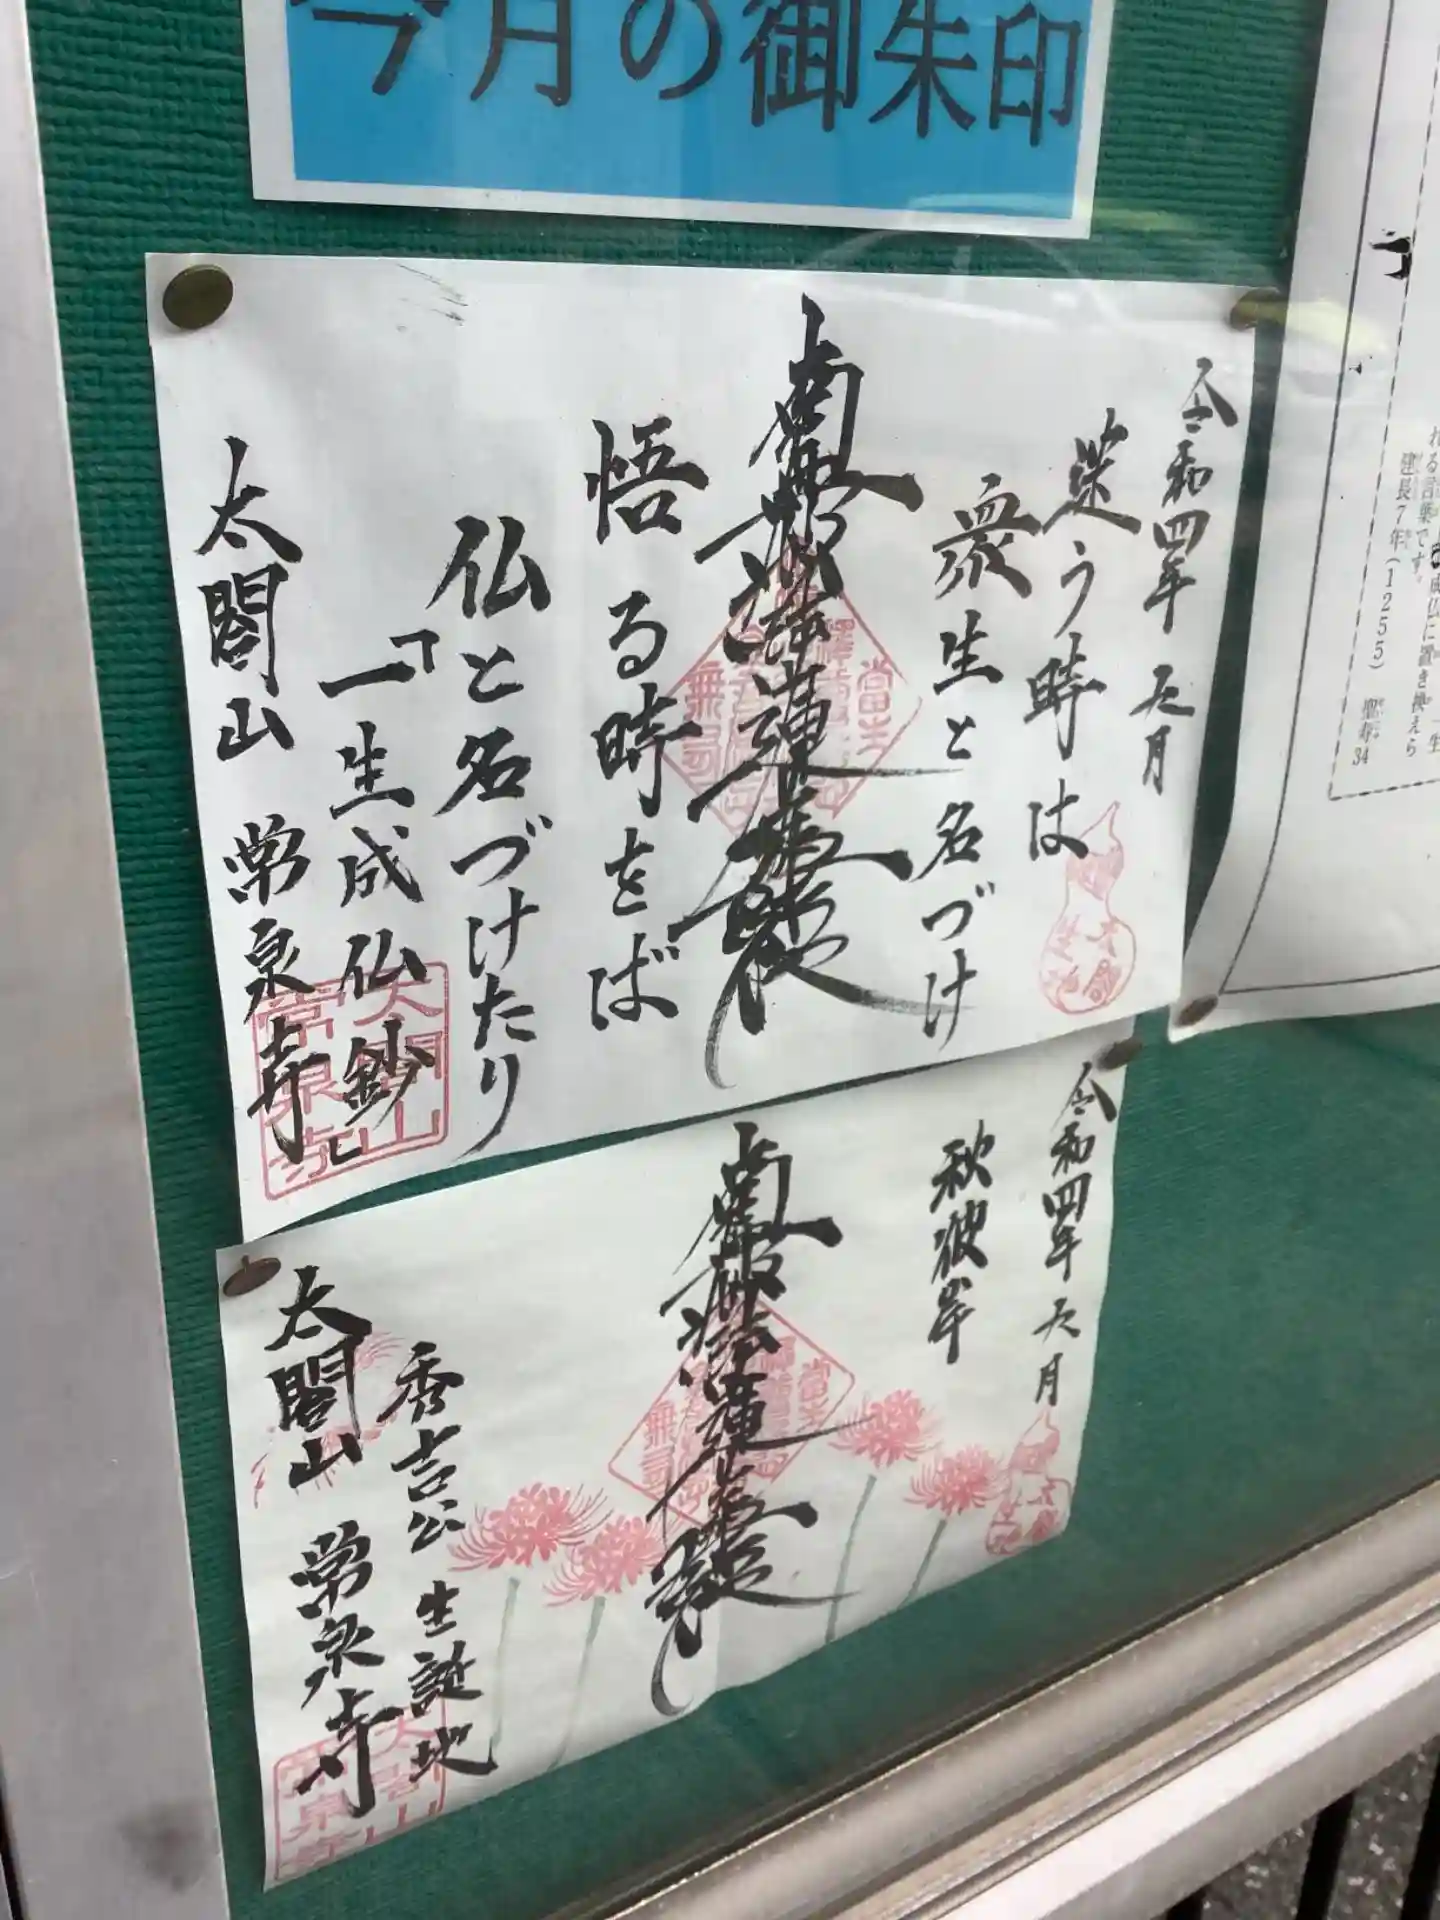 今月の御朱印
令和四年 九月
迷う時は
衆生と名づけ
南無妙法蓮華経
悟る時をば
仏と名づけたり
「一生成仏鈔」
太閤山 常泉寺
令和四年 九月
秋彼岸
南無妙法蓮華経
秀吉公 生誕地
太閤山 常泉寺
れる言葉です。
建長7年(1255) 聖寿34